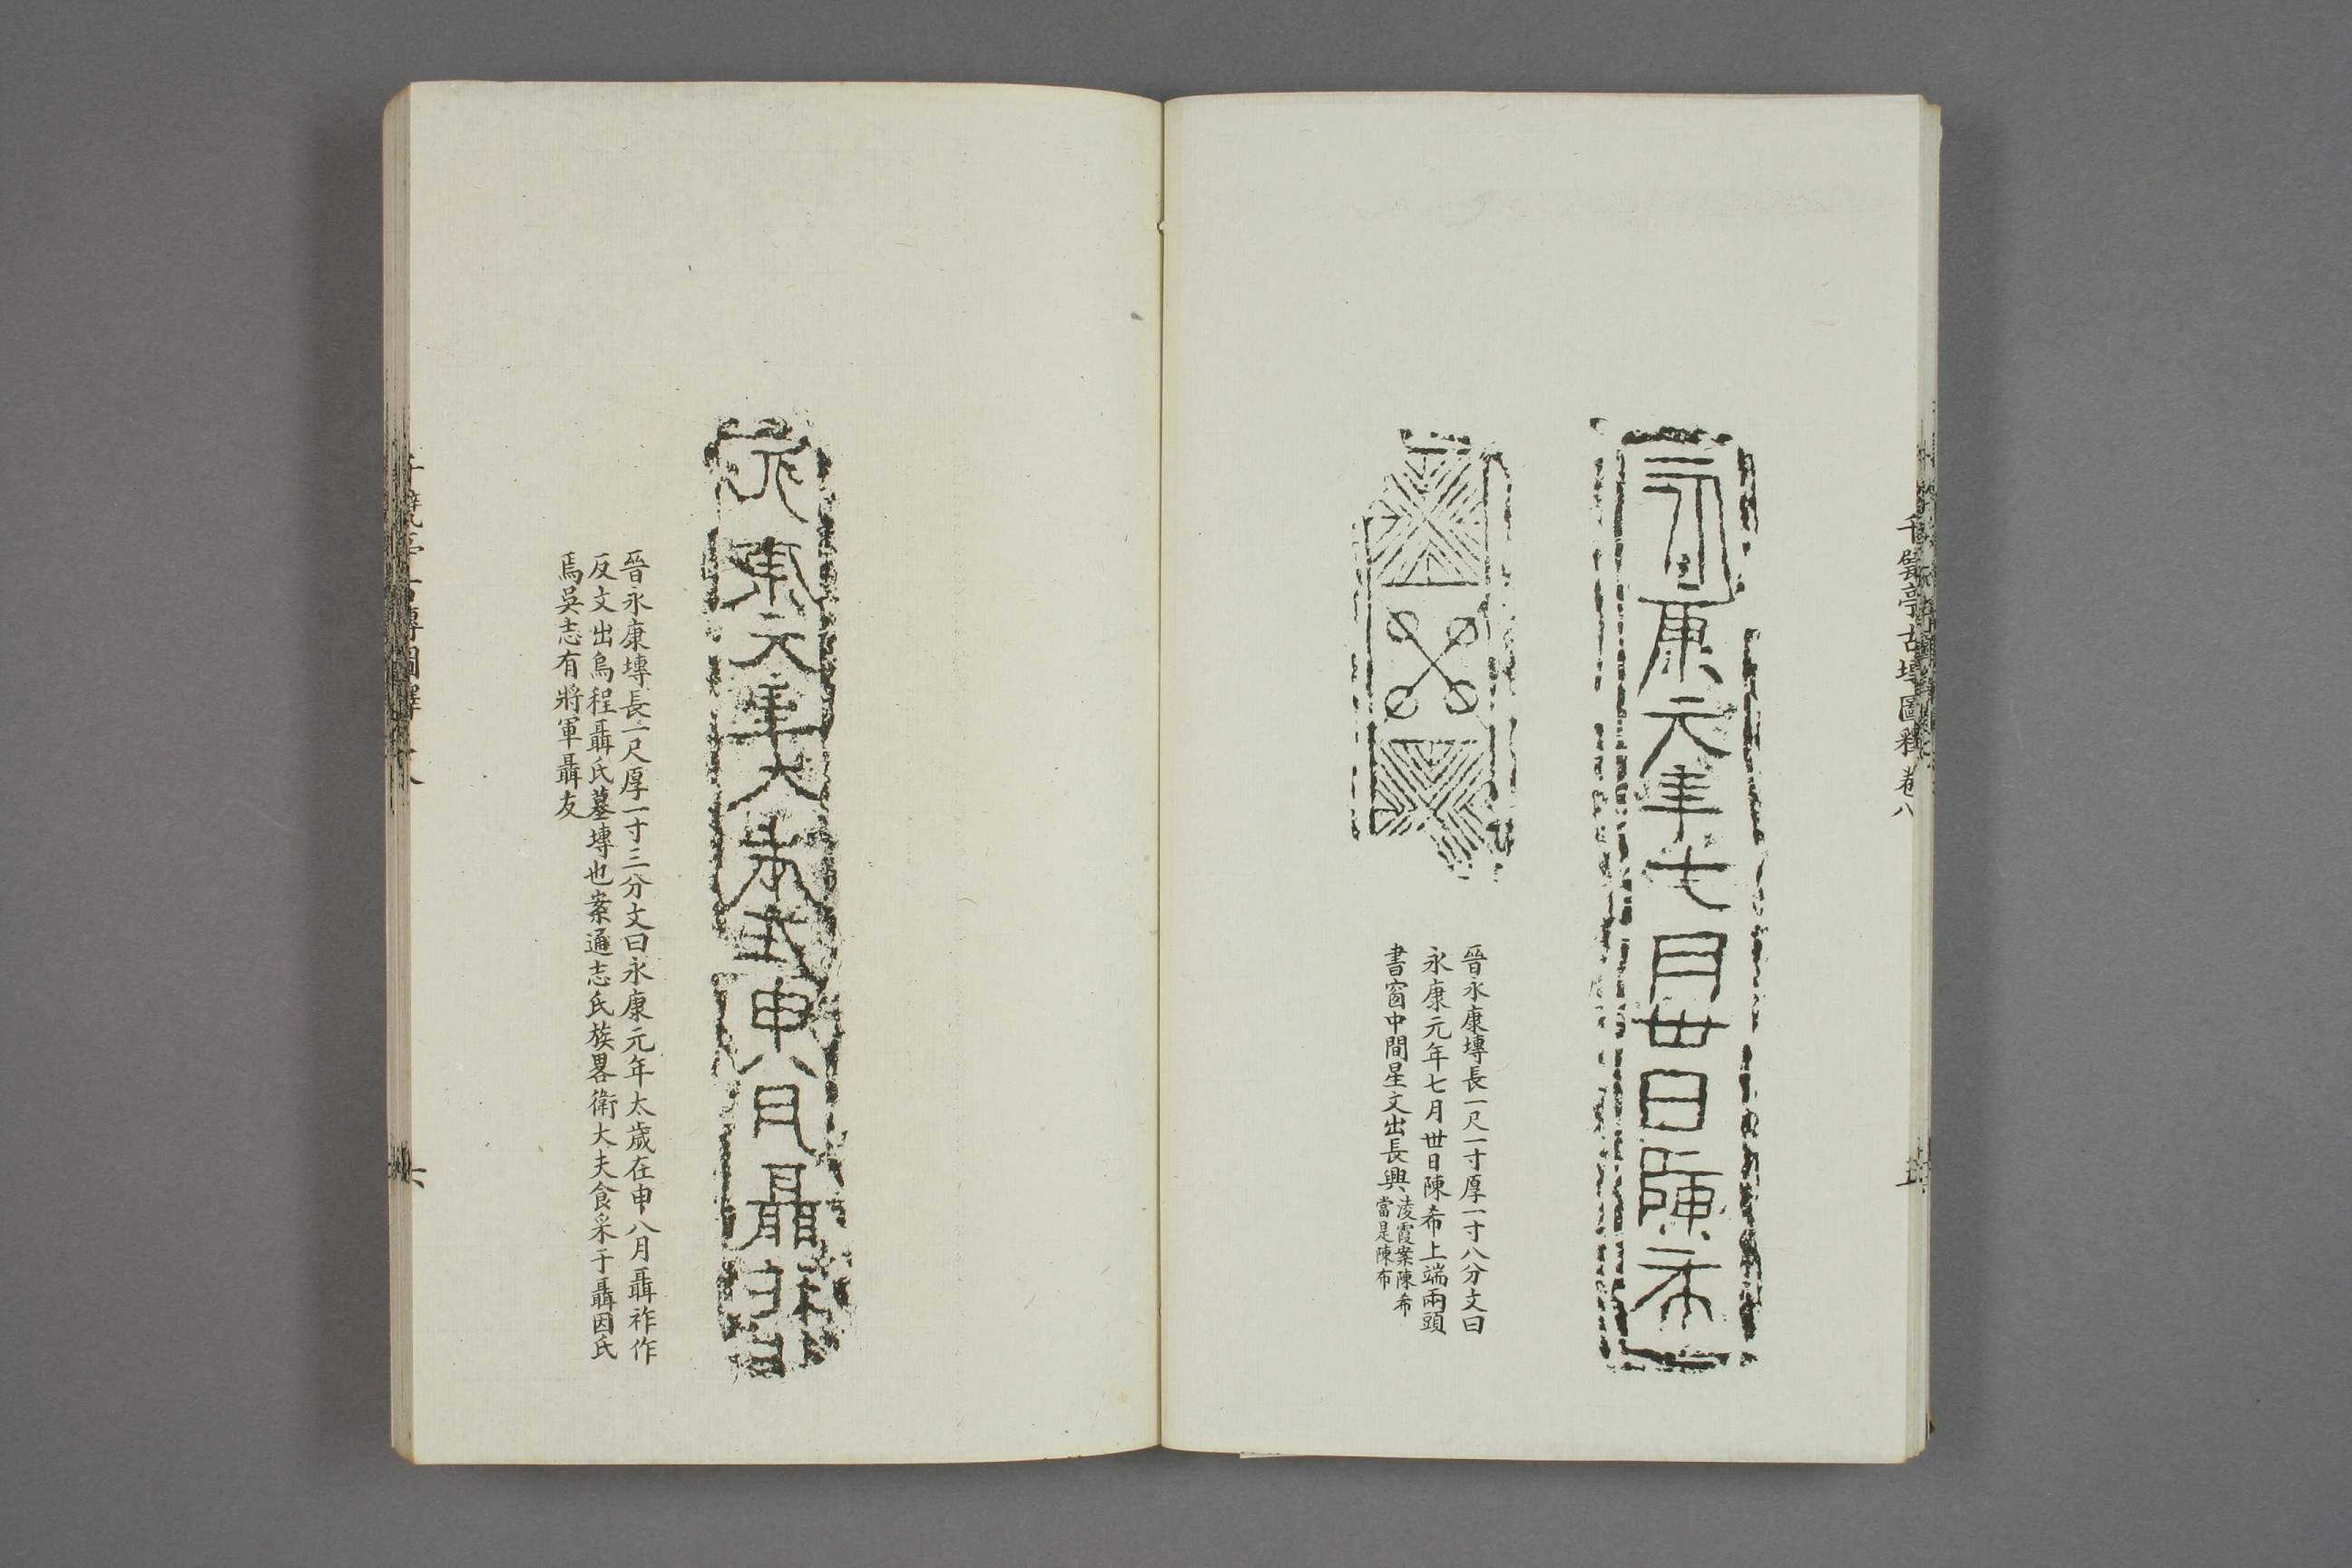 千甓亭古塼圖釋 卷八
永康元年七月卅日陳希
晉永康塼長一尺一寸厚一寸八分文曰
永康元年七月卅日陳希上端兩頭
書窗中間星文出長興
淩霞案陳希
當是陳布
永康元年太歲在申八月聶
晉永康塼長一尺厚一寸三分文曰永康元年太歲在申八月聶祚作
反文出烏程聶氏墓塼也案通志氏族畧衛大夫食采于聶因氏
焉吳志有將軍聶友